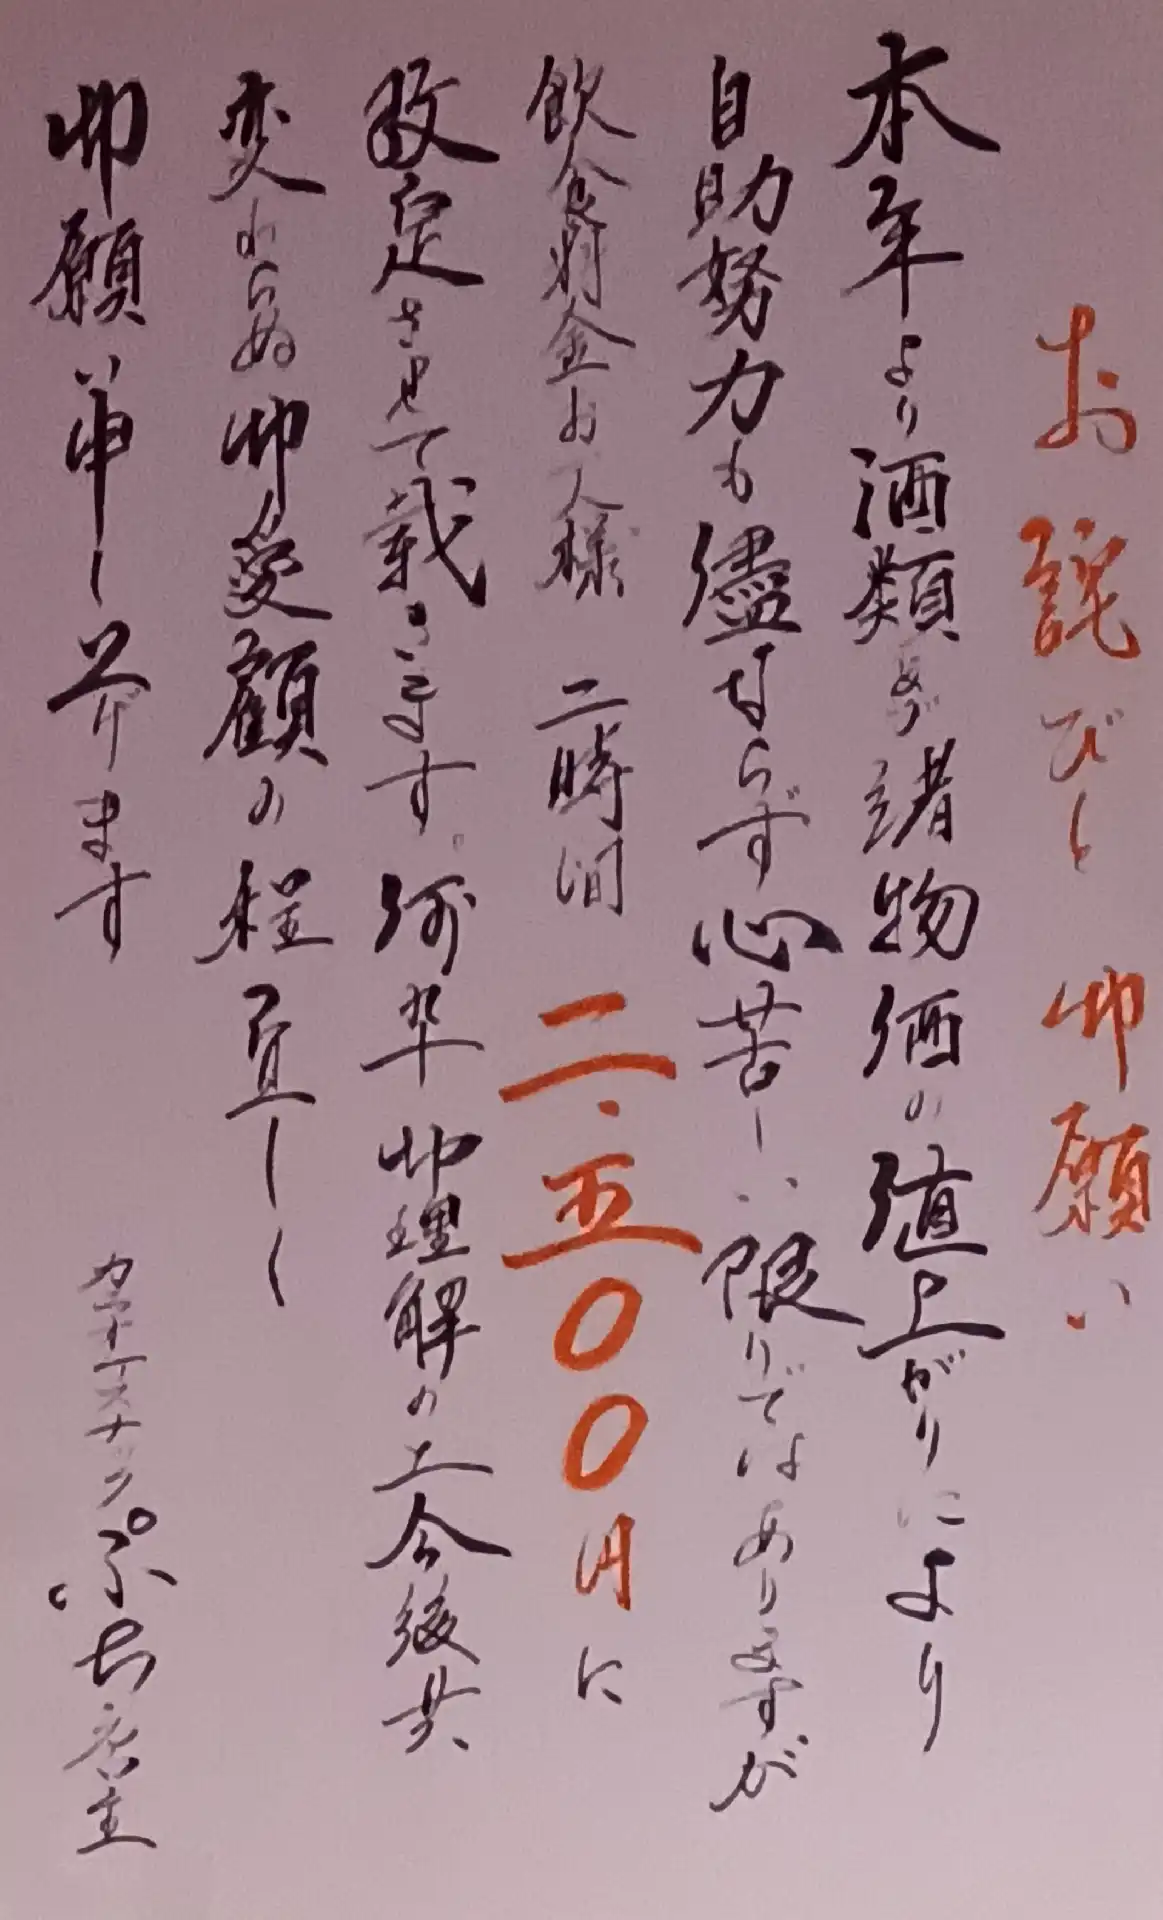 お詫びと 御願い
本年より酒類及び諸物価の値上がりにより
自助努力も儘ならず心苦しい限りではありますが
飲食料金お一人様 二時間 二.五〇〇円に
改定させて戴きます。何卒御理解の上今後共
変わらぬ御愛顧の程宜しく
御願い申し上げます
カラオケスナックぷち店主